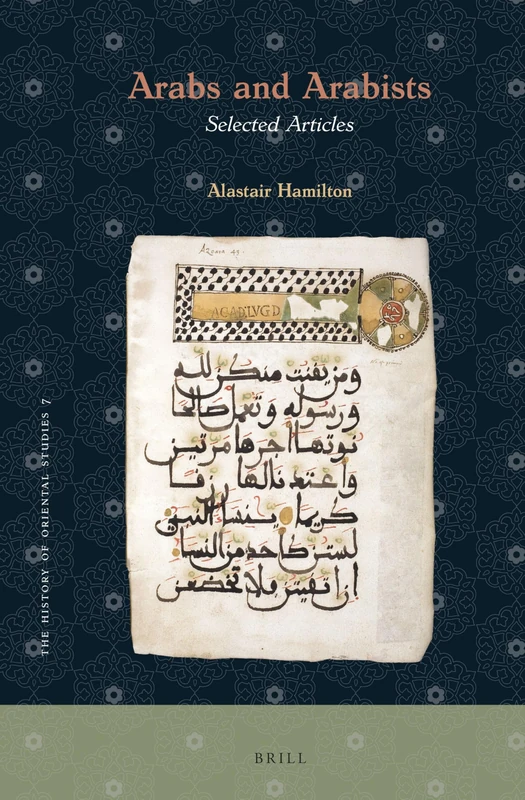 Arabs and Arabists
Selected Articles
Alastair Hamilton
ومن يقنت منكن لله
ورسوله وتعمل صالحا
نوتها اجرها مرتين
واعتدنا لها رزقا
كريما ينساء النبي
لستن كاحد من النساء
ان اتقيتن فلا تخضعن
THE HISTORY OF ORIENTAL STUDIES 7
BRILL